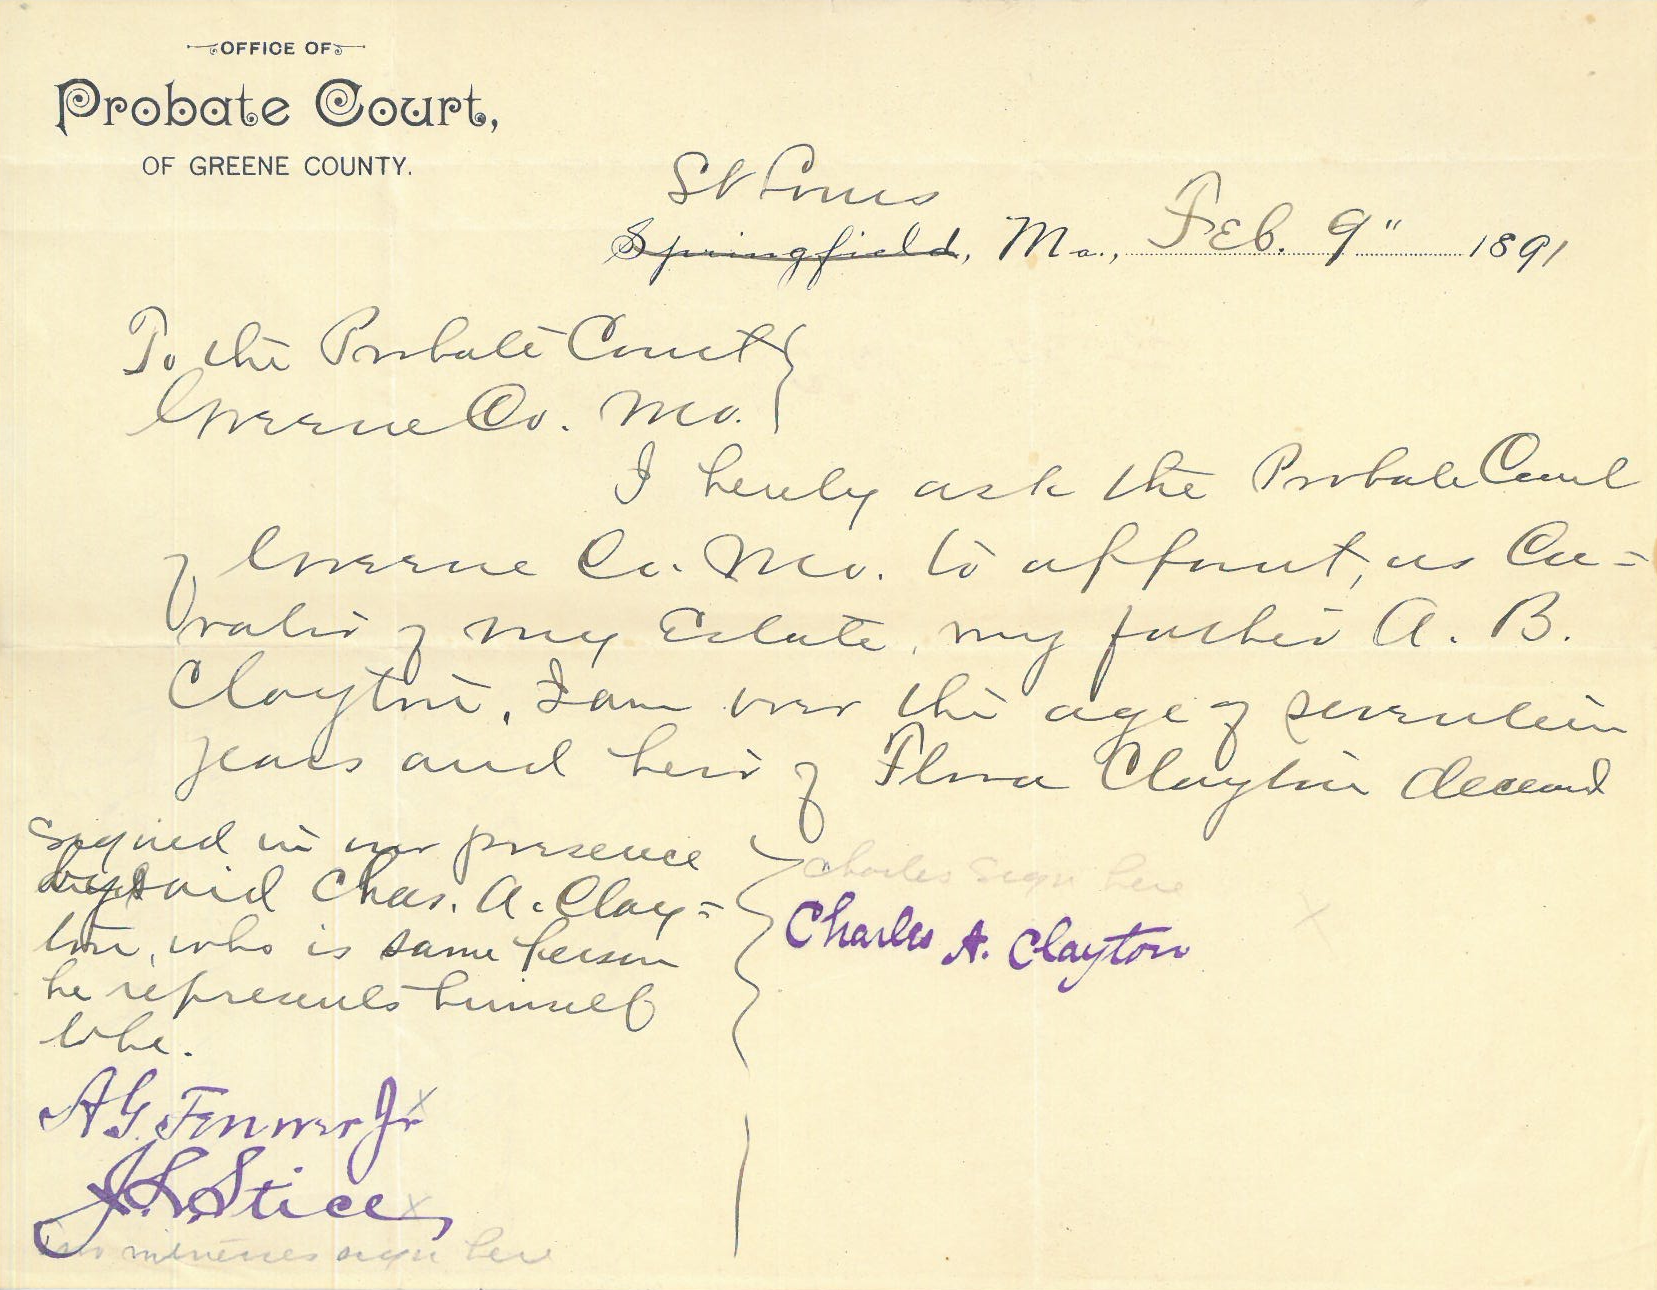 OFFICE OF
Probate Court,
OF GREENE COUNTY.
St Louis
Springfield, Mo., Feb. 9" 1891
To the Probate Court
Greene Co. Mo.
I hereby ask the Probate Court
of Greene Co. Mo. to appoint, as Cu=
rator of my Estate, my father A. B.
Clayton, I am over the age of seventeen
years and heir of Flora Clayton deceased
Signed in our presence
by said Chas. A. Clay=
ton, who is same person
he represents himself
to be.
Charles sign here
x
Charles A. Clayton
A G. Fenner Jr x
J. L. Stice x
two witnesses sign here